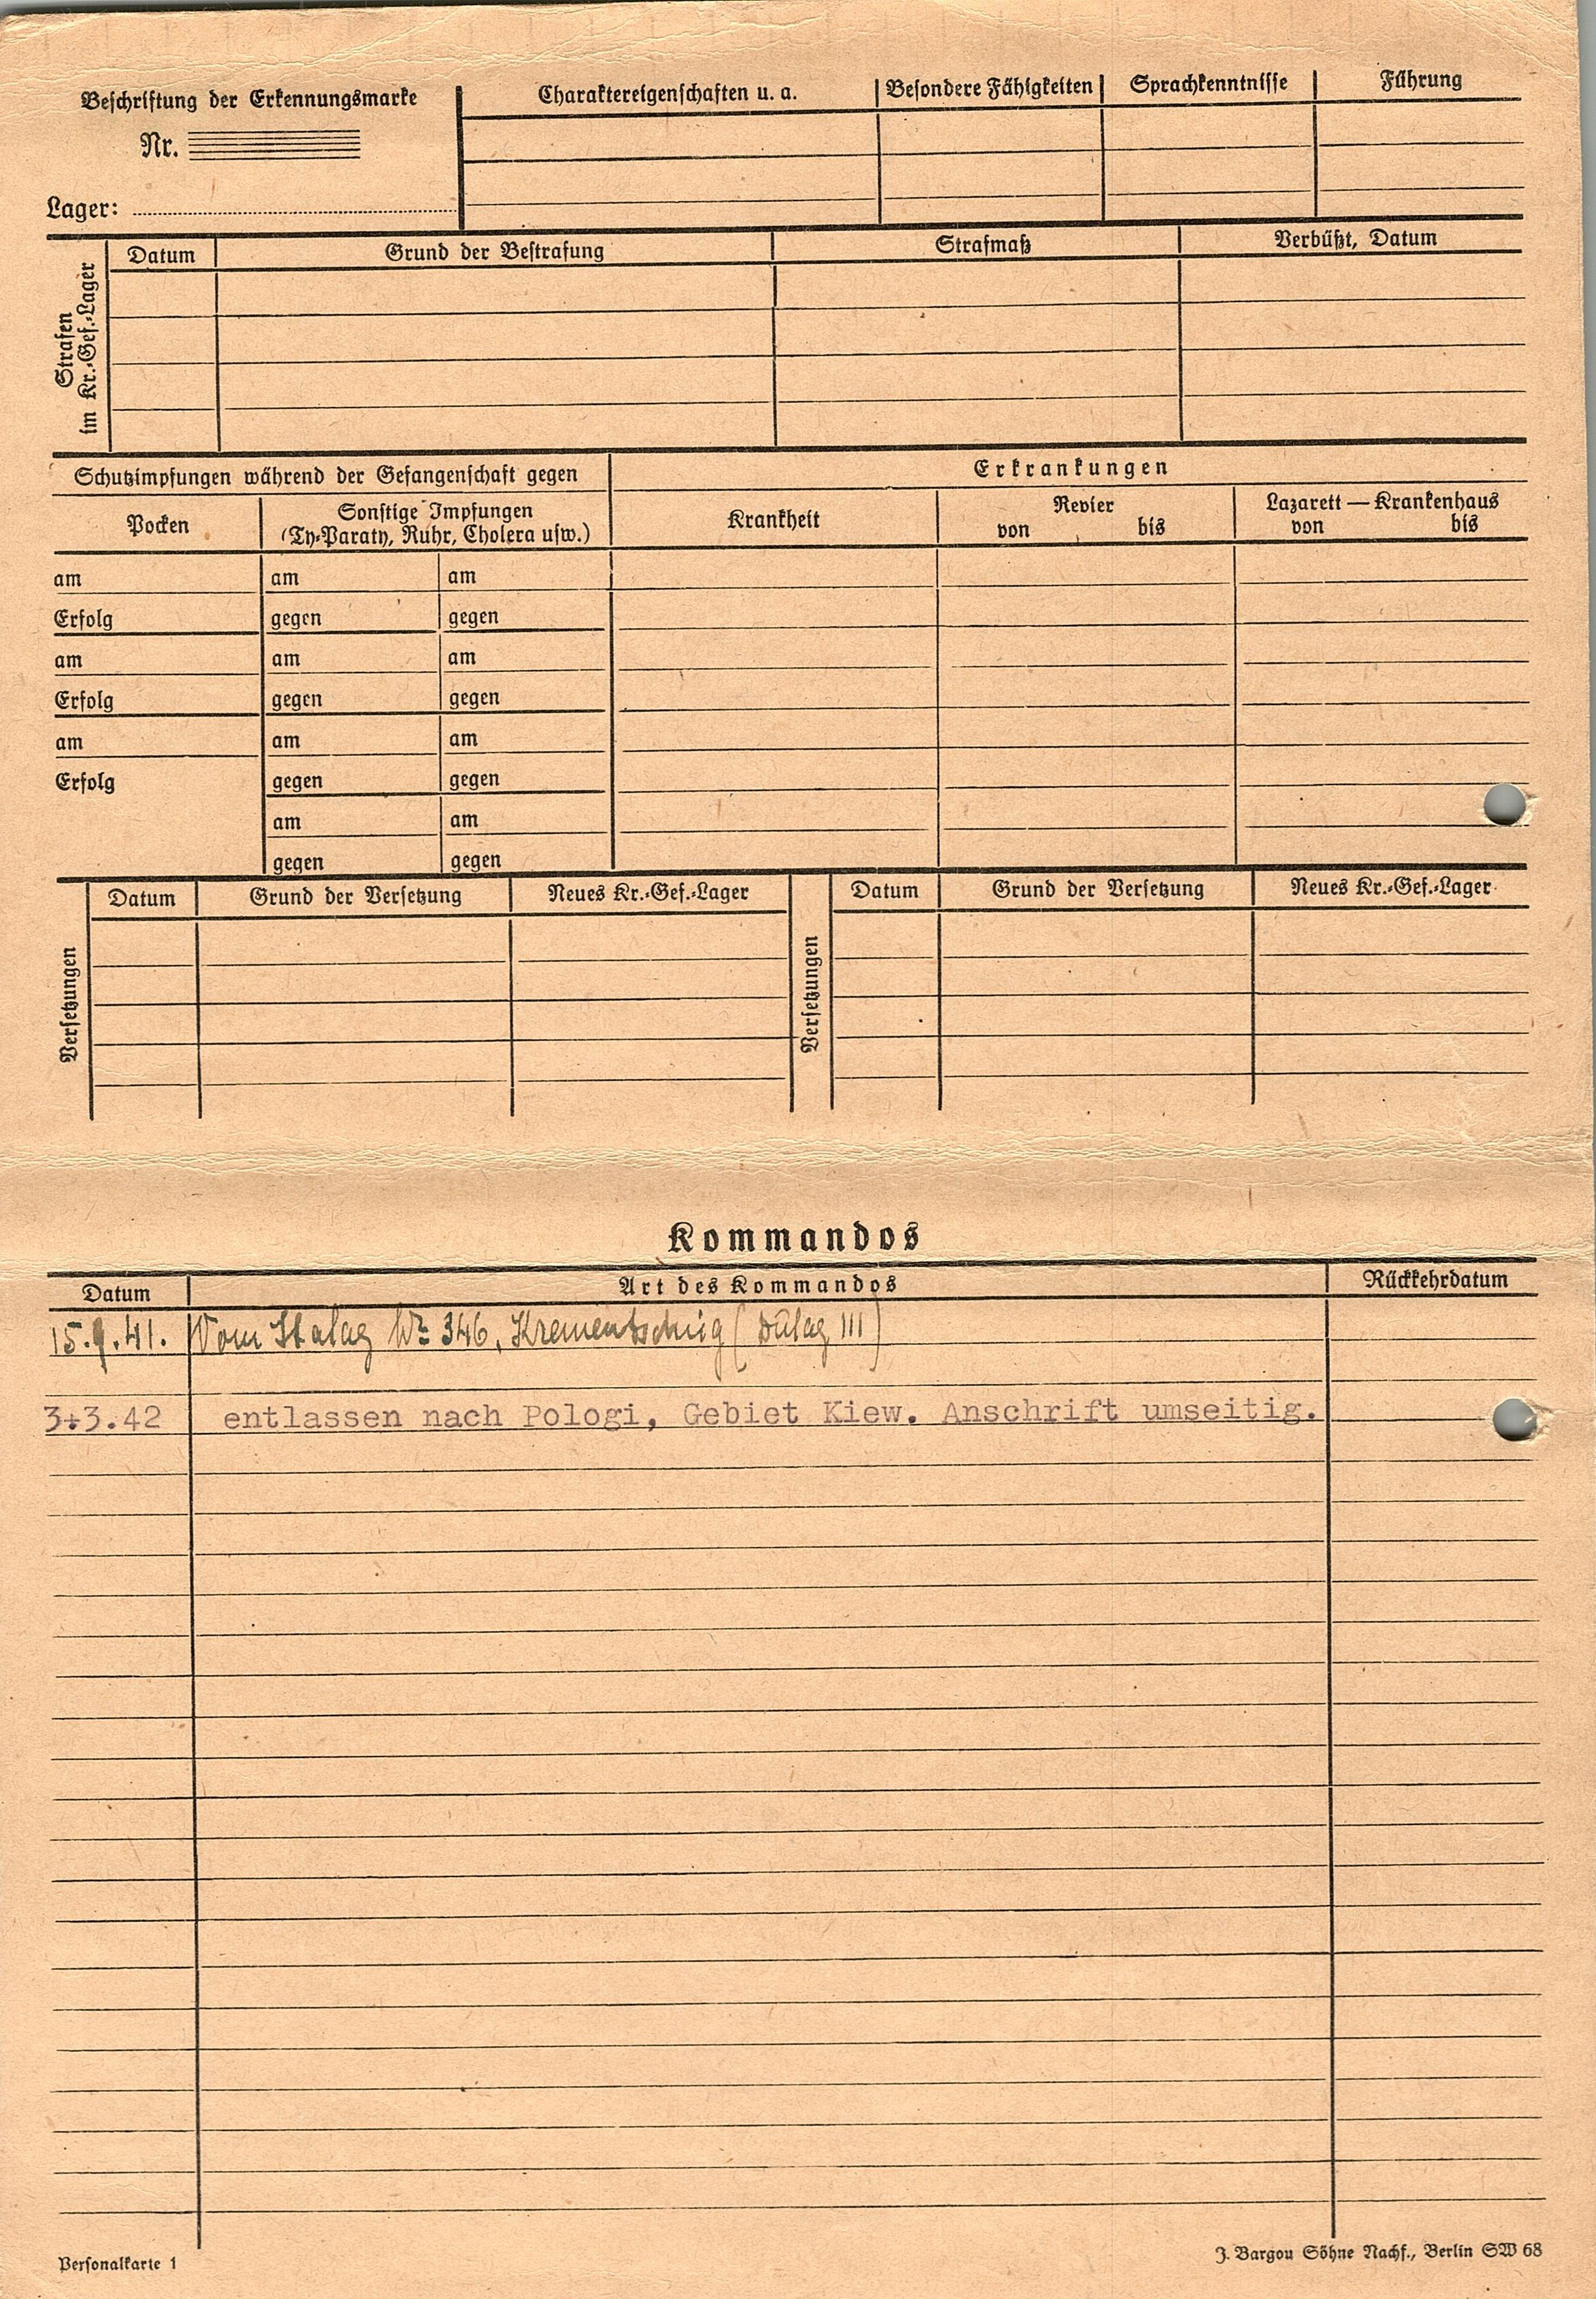 Beschriftung der Erkennungsmarke
Nr.
Lager:
Charaktereigenschaften u. a.
Besondere Fähigkeiten
Sprachkenntnisse
Führung
Strafen
im Kr.-Gef.-Lager
Datum
Grund der Bestrafung
Strafmaß
Verbüßt, Datum
Schutzimpfungen während der Gefangenschaft gegen
Erkrankungen
Pocken
Sonstige Impfungen
(Ty-Paraty, Ruhr, Cholera usw.)
Krankheit
Revier
von bis
Lazarett — Krankenhaus
von bis
am am am
Erfolg gegen gegen
am am am
Erfolg gegen gegen
am am am
Erfolg gegen gegen
am am
gegen gegen
Versetzungen
Datum Grund der Versetzung Neues Kr.-Gef.-Lager
Versetzungen
Datum Grund der Versetzung Neues Kr.-Gef.-Lager
Kommandos
Datum Art des Kommandos Rückkehrdatum
15.9.41. Vom Stalag Nr. 346, Krementschug (Dulag III)
3.3.42 entlassen nach Pologi, Gebiet Kiew. Anschrift umseitig.
Personalkarte 1
J. Bargou Söhne Nachf., Berlin SW 68